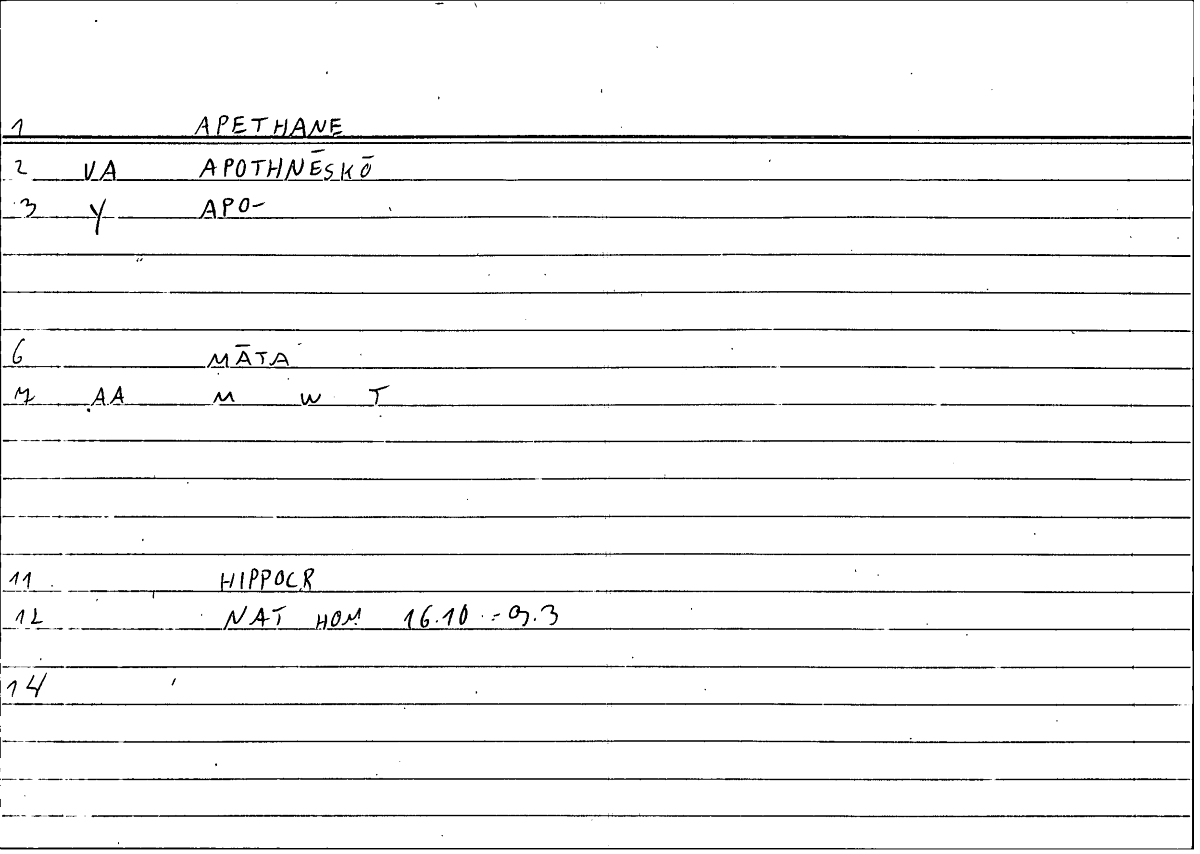 1 APETHANE
2 VA APOTHNĒSKŌ
3 Y APO-
6 MĀTA
7 AA M W T
11 HIPPOCR
12 NAT HOM 16.10 = 9.3
14